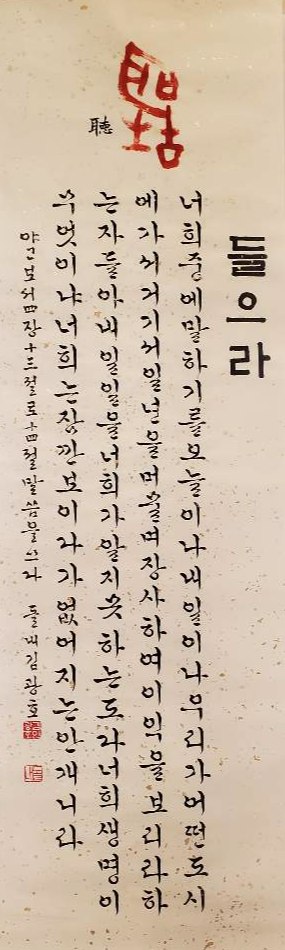 聽
들으라
너희중에말하기를오늘이나내일이나우리가어떤도시
에가서거기서일년을머물며장사하여이익을보리라하
는자들아내일일을너희가알지못하는도다너희생명이
무엇이냐너희는잠깐보이다가없어지는안개니라
야고보서四장十三절로十四절말씀을쓰다 들내김광호